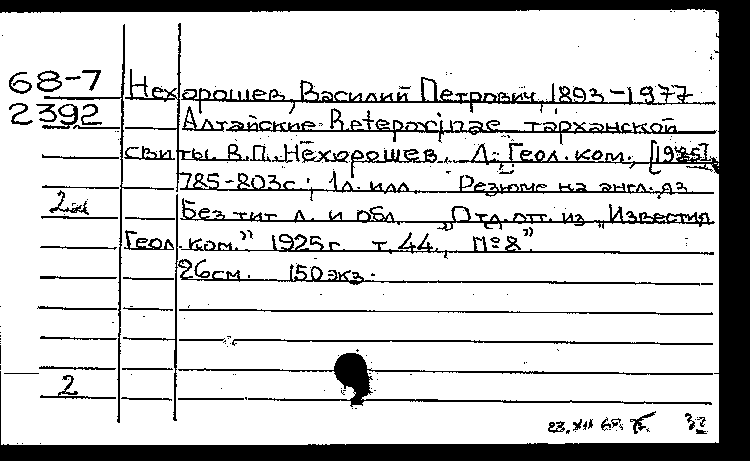 68-7 Нехорошев, Василий Петрович, 1893-1977
2392 Алтайские Reteporinae тарханской
свиты. В.П. Нехорошев. Л.: Геол. ком.,
785-803с.; 1л. илл. Резюме на англ. яз
Без тит л. и обл. „Отд. отт. из „Известия
Геол. ком." 1925г. т. 44, №8".
26см. 150 экз.
2
23.XII 68.